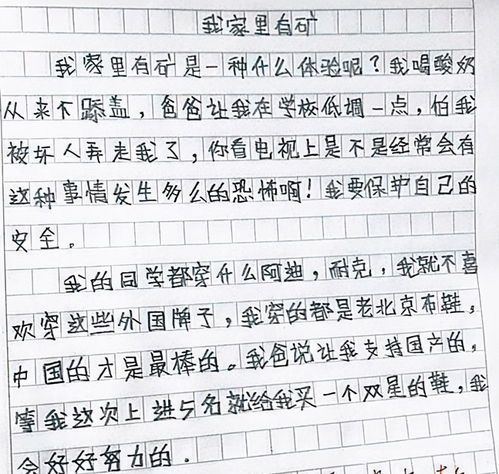 我家里有矿
我家里有矿是一种什么体验呢？我喝酸奶
从来不舔盖，爸爸让我在学校低调一点，怕我
被坏人弄走我了，你看电视上是不是经常会有
这种事情发生多么的恐怖啊！我要保护自己的
安全。
我的同学都穿什么阿迪，耐克，我就不喜
欢穿这些外国牌子，我穿的都是老北京布鞋，
中国的才是最棒的。我爸说让我支持国产的，
等我这次上进5名就给我买一个双星的鞋，我
会好好努力的。